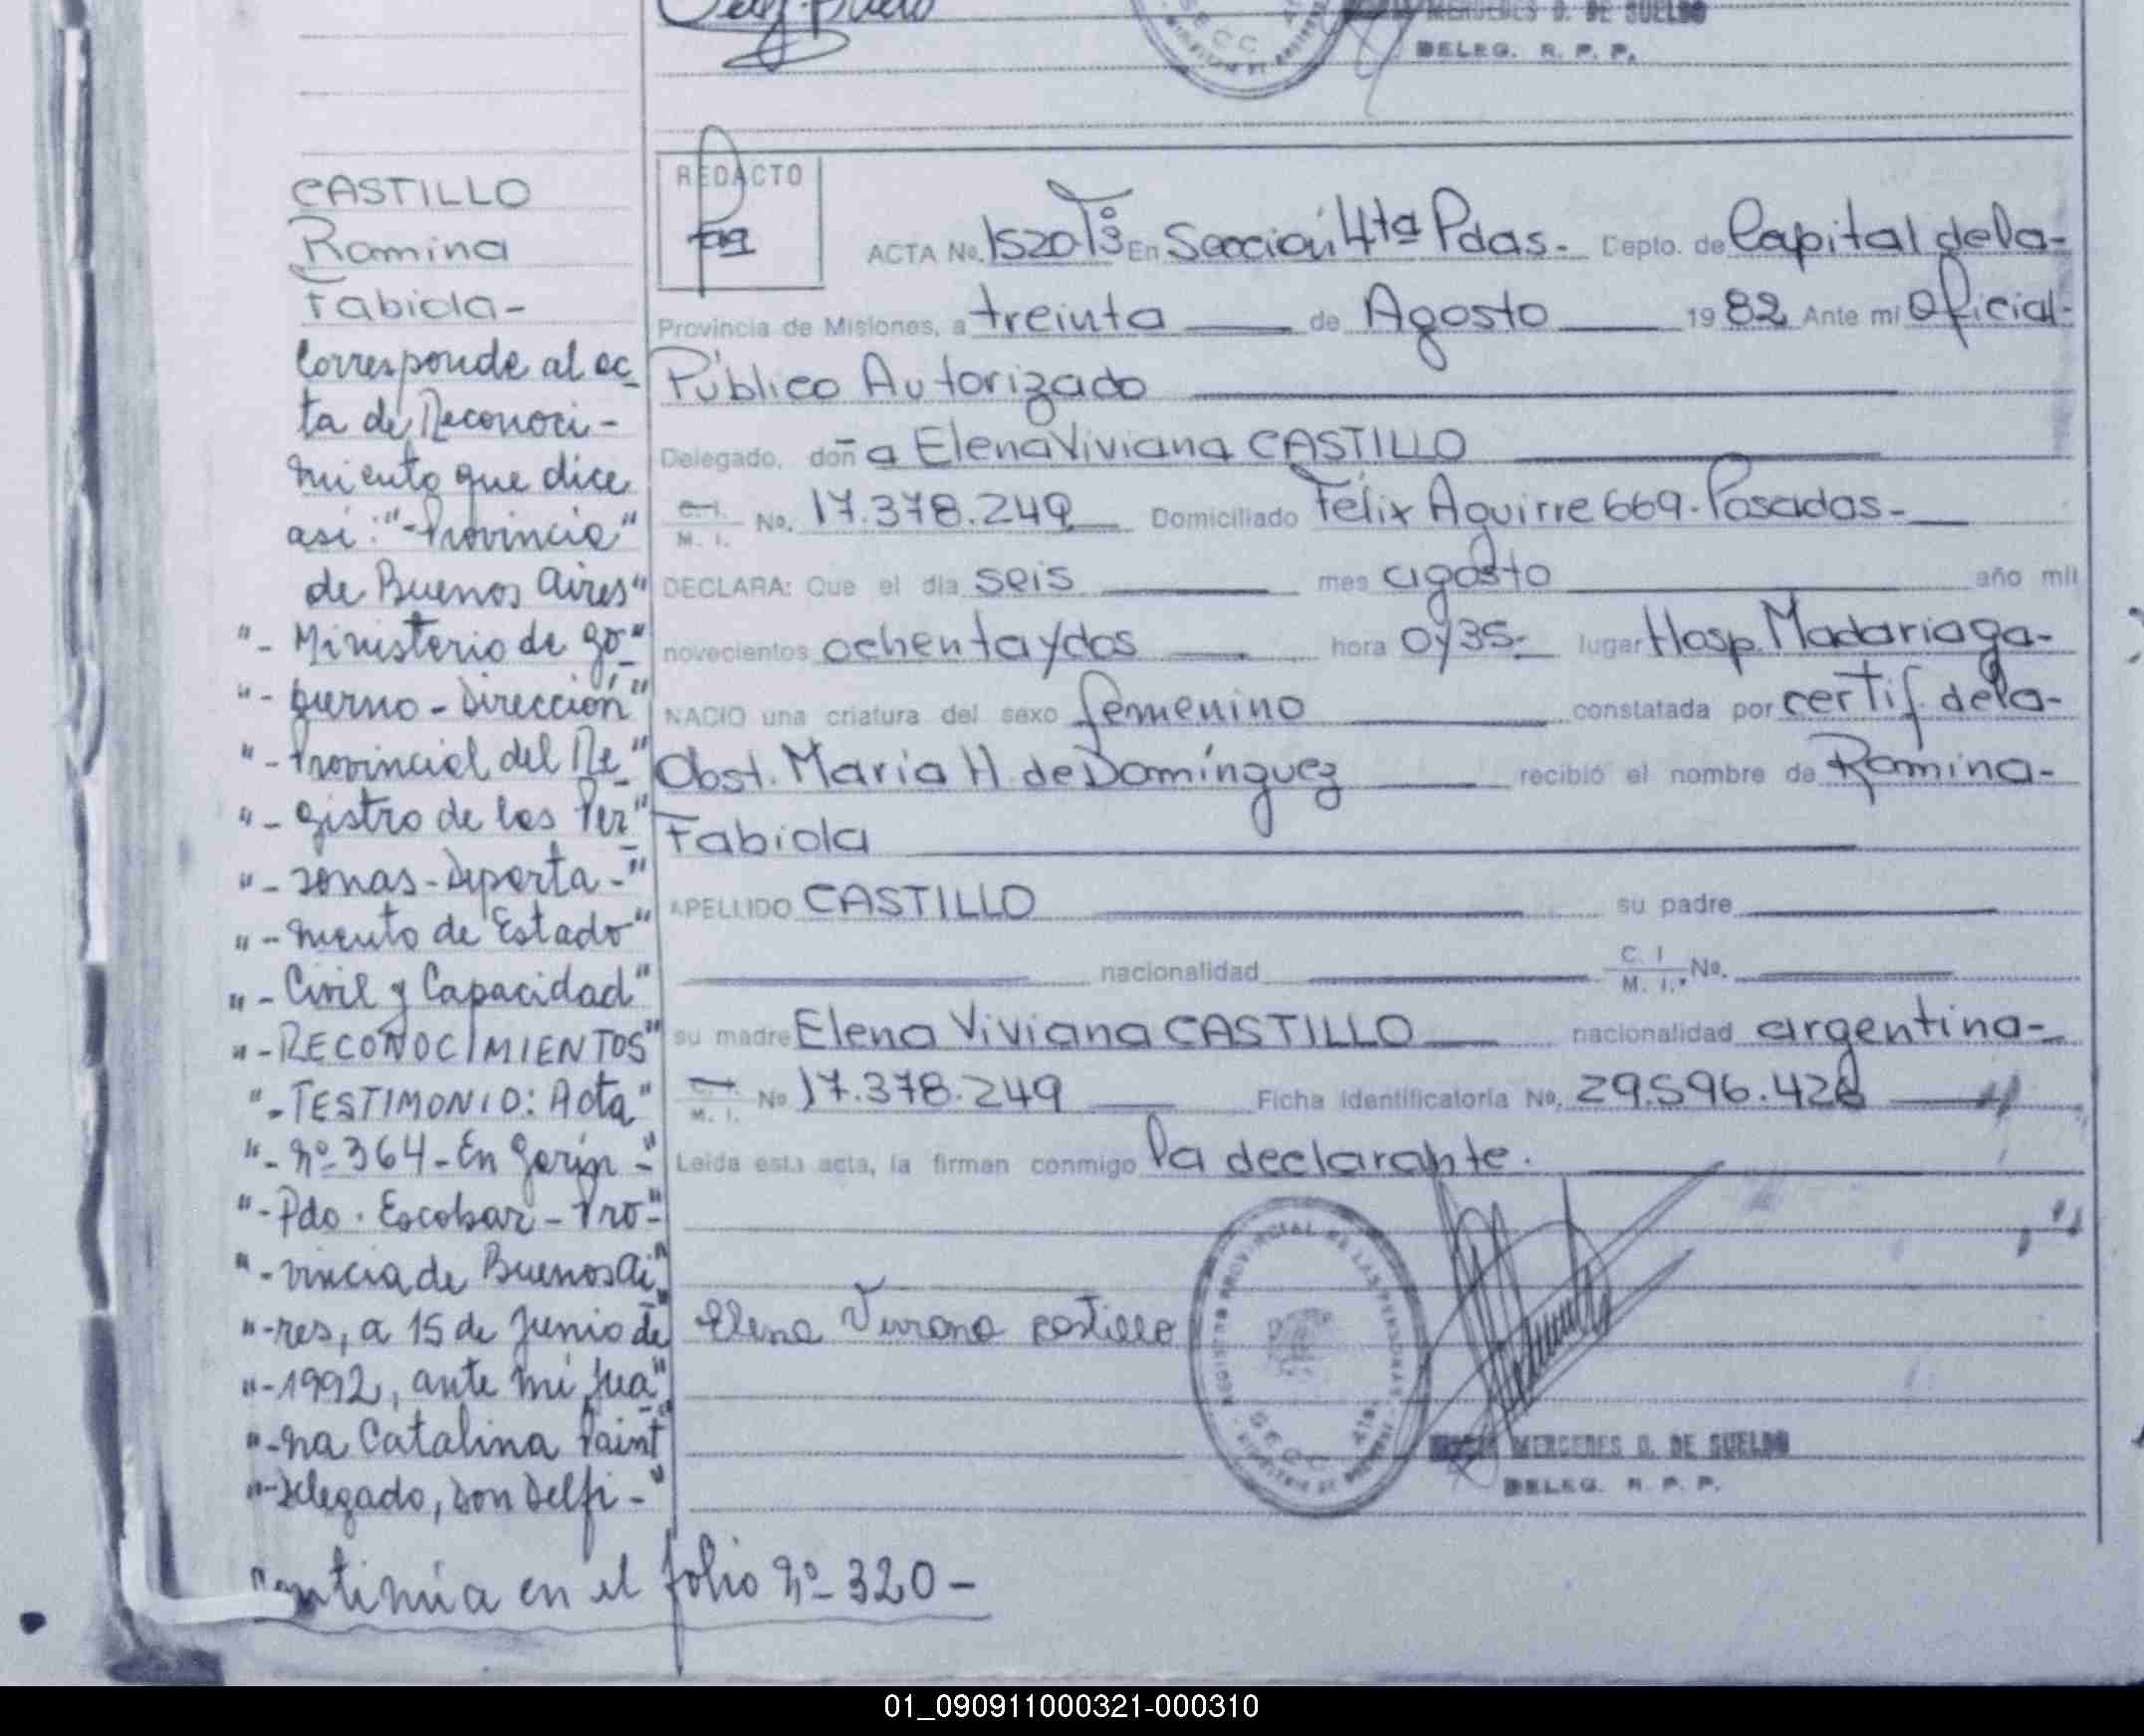 MERCEDES D. DE SUELDO
DELEG. R. P. P.
CASTILLO
Romina
Fabiola-
Corresponde al ac
ta de Reconoci-
miento que dice
asi: "-Provincia"
de Buenos Aires"
"- Ministerio de Go-"
"- bierno - Dirección"
"- Provincial del Re"
"- gistro de las Per"
"- sonas - Departa-"
"- mento de Estado"
"- Civil y Capacidad"
"- RECONOCIMIENTOS"
"- TESTIMONIO: Acta"
"- nº 364 - En Garin -"
"- Pdo. Escobar - Pro-"
"- vincia de Buenos Ai"
"- res, a 15 de Junio de"
"- 1992, ante mi Jua"
"- na Catalina Paint"
"- Delegado, Don Delfi-"
Continúa en el folio nº 320 -
REDACTO
ACTA No. 1520 Tº3 En Sección 4ta Pdas.- Depto. de Capital de la-
Provincia de Misiones, a treinta de Agosto 1982 Ante mi Oficial-
Público Autorizado
Delegado, doña Elena Viviana CASTILLO
C. I. M. I. No. 17.378.249 Domiciliado Félix Aguirre 669 - Posadas-
DECLARA: Que el dia seis mes agosto año mil
novecientos ochenta y dos hora 0y35- lugar Hosp. Madariaga-
NACIO una criatura del sexo femenino constatada por certif. de la-
Obst. María H. de Domínguez recibió el nombre de Romina-
Fabiola
APELLIDO CASTILLO su padre
nacionalidad C. I. M. I. No.
su madre Elena Viviana CASTILLO nacionalidad argentina-
C. I. M. I. No 17.378.249 Ficha identificatoria No. 29.596.428
Leida esta acta, la firman conmigo la declarante.
Elena Viviana Castillo
REGISTRO PROVINCIAL DE LAS PERSONAS
SECC. 4TA.
MERCEDES D. DE SUELDO
DELEG. R. P. P.
01_090911000321-000310